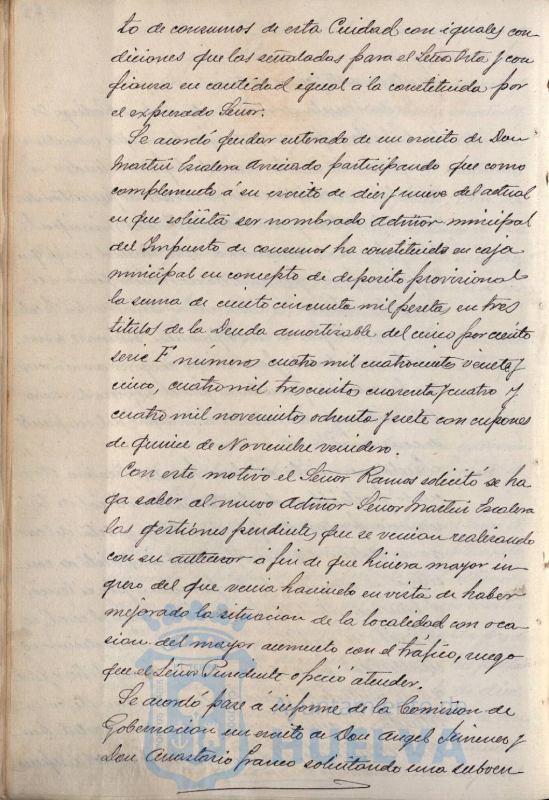 to de consumos de esta Ciudad con iguales con
diciones que las señaladas para el Señor Orta y con
fianza en cantidad igual á la constituida por
el expresado Señor.
Se acordó quedar enterado de un escrito de Don
Martin Escalera Aniciado participando que como
complemento á su escrito de diez y nueve del actual
en que solicita ser nombrado Admõr municipal
del Impuesto de consumos ha constituido en caja
municipal en concepto de deposito provisional
la suma de ciento cincuenta mil pesetas en tres
titulos de la Deuda amortizable del cinco por ciento
serie F números cuatro mil cuatrocientos veinte y
cinco, cuatro mil trescientos cuarenta y cuatro y
cuatro mil novecientos ochenta y siete con cupones
de quince de Noviembre venidero.
Con este motivo el Señor Ramos solicitó se ha
ga saber al nuevo Admõr Señor Martin Escalera
las gestiones pendientes que se venian realizando
con su antecesor á fin de que hiciera mayor in
greso del que venia haciendo en vista de haber
mejorado la situacion de la localidad con oca
sion del mayor aumento con el tráfico, ruego
que el Señor Presidente ofreció atender.
Se acordó pase á informe de la Comision de
Gobernacion un escrito de Don Angel Jimenez y
Don Anastasio Franco solicitando una subven
HUELVA